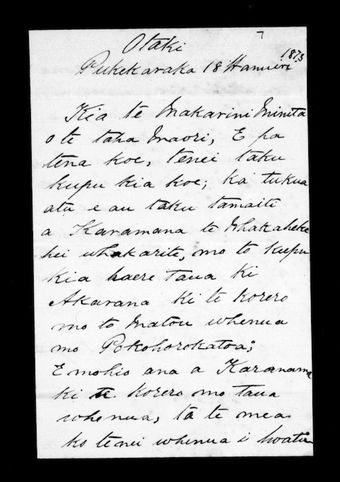 Otaki
7
Pukekaraka 18 Hanueri 1873
Kia te Makarini Minita
o te taha Maori, E pa
tena koe, tenei taku
kupu kia koe; ka tukua
atu e au taku tamaite
a Karamana te Whakaheke
hei whakarite, mo to kupu
kia haere taua ki
Akarana ki te korero
mo to matou whenua
mo
E mohio ana a Karanama
ki te korero mo taua
whenua, ta te mea
ko tenei whenua i hoatu